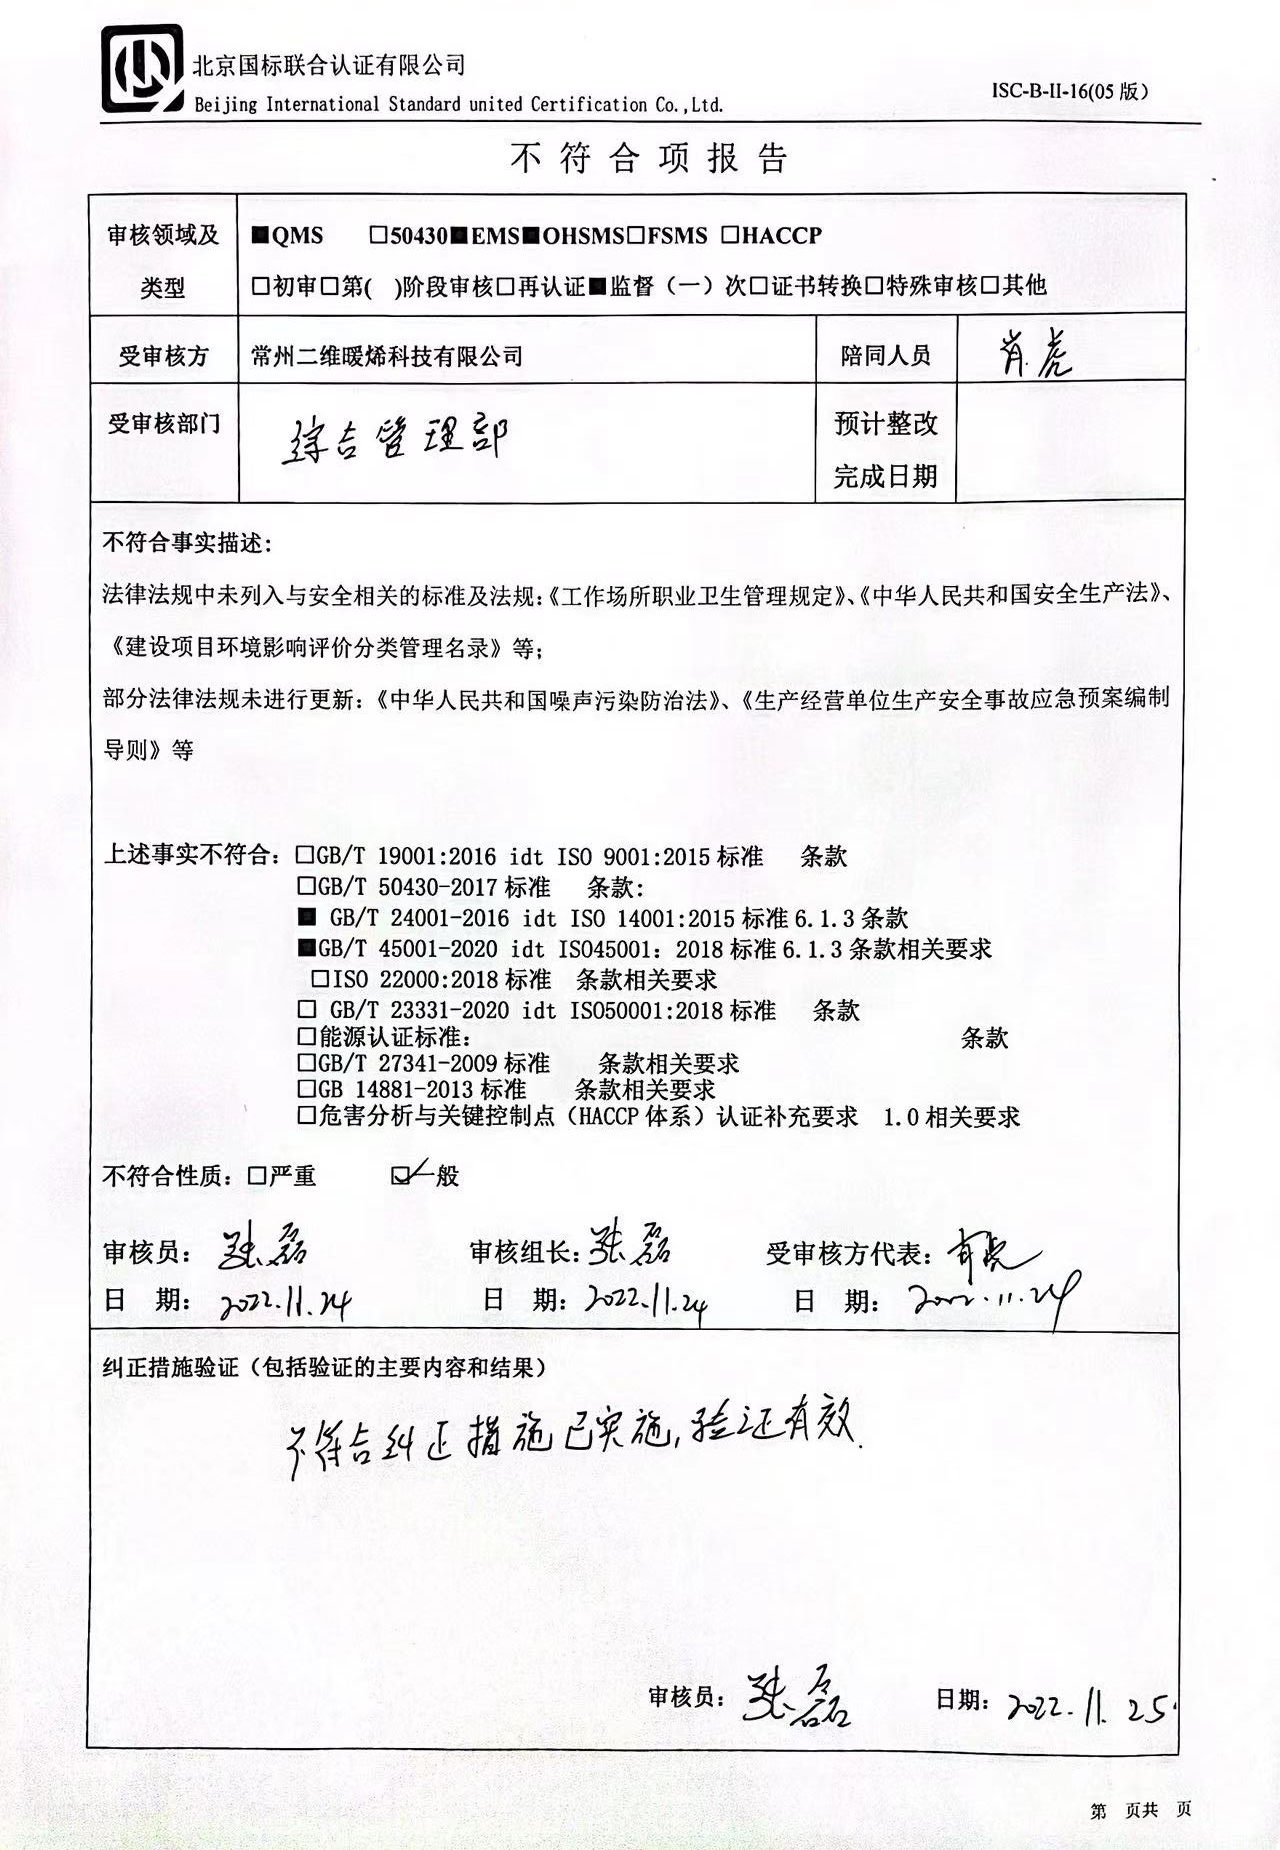 北京国标联合认证有限公司
Beijing International Standard united Certification Co.,Ltd.
ISC-B-II-16(05 版)
不符合项报告
审核领域及类型
■QMS □50430■EMS■OHSMS□FSMS □HACCP
□初审□第( )阶段审核□再认证■监督（一）次□证书转换□特殊审核□其他
受审核方 常州二维暖烯科技有限公司 陪同人员 肖虎
受审核部门 综合管理部 预计整改
完成日期
不符合事实描述：
法律法规中未列入与安全相关的标准及法规：《工作场所职业卫生管理规定》、《中华人民共和国安全生产法》、
《建设项目环境影响评价分类管理名录》等；
部分法律法规未进行更新：《中华人民共和国噪声污染防治法》、《生产经营单位生产安全事故应急预案编制
导则》等
上述事实不符合：□GB/T 19001:2016 idt ISO 9001:2015 标准 条款
□GB/T 50430-2017 标准 条款：
■ GB/T 24001-2016 idt ISO 14001:2015 标准 6.1.3 条款
■GB/T 45001-2020 idt ISO45001：2018 标准 6.1.3 条款相关要求
□ISO 22000:2018 标准 条款相关要求
□ GB/T 23331-2020 idt ISO50001:2018 标准 条款
□能源认证标准： 条款
□GB/T 27341-2009 标准 条款相关要求
□GB 14881-2013 标准 条款相关要求
□危害分析与关键控制点（HACCP 体系）认证补充要求 1.0 相关要求
不符合性质：□严重 ☑一般
审核员：张磊 审核组长：张磊 受审核方代表：肖虎
日 期：2022.11.24 日 期：2022.11.24 日 期：2022.11.24
纠正措施验证（包括验证的主要内容和结果）
不符合纠正措施已实施,验证有效.
审核员：张磊 日期：2022.11.25
第 页共 页